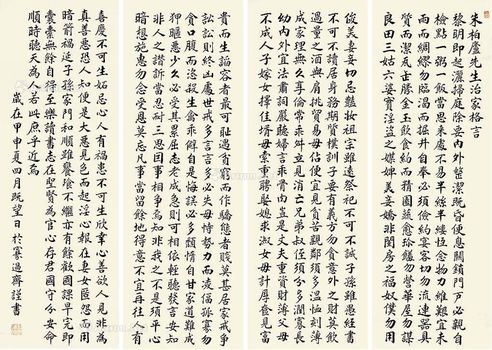 朱柏廬先生治家格言
黎明即起灑掃庭除要內外整潔既昏便息關鎖門戶必親自
檢點一粥一飯當思來處不易半絲半縷恒念物力維艱宜未
雨而綢繆勿臨渴而掘井自奉必須儉約宴客切勿流連器具
質而潔瓦缶勝金玉飲食約而精園蔬愈珍饈勿營華屋勿謀
良田三姑六婆實淫盜之媒婢美妾嬌非閨房之福奴僕勿用
俊美妻妾切忌艷妝祖宗雖遠祭祀不可不誠子孫雖愚經書
不可不讀居身務期質樸訓子要有義方勿貪意外之財莫飲
過量之酒與肩挑貿易毋佔便宜見貧苦親鄰須多溫恤刻薄
成家理無久享倫常乖舛立見消亡兄弟叔侄須分多潤寡長
幼內外宜法肅辭嚴聽婦言乖骨肉豈是丈夫重資財薄父母
不成人子嫁女擇佳婿毋索重聘娶媳求淑女毋計厚奩見富
貴而生諂容者最可恥遇貧窮而作驕態者賤莫甚居家戒爭
訟訟則終凶處世戒多言言多必失毋恃勢力而凌逼孤寡勿
貪口腹而恣殺生禽乖僻自是悔誤必多頹惰自甘家道難成
狎暱惡少久必受其累屈志老成急則可相依輕聽發言安知
非人之譖訴當忍耐三思因事相爭焉知非我之不是須平心
暗想施惠勿念受恩莫忘凡事當留餘地得意不宜再往人有
喜慶不可生妒忌心人有禍患不可生欣幸心善欲人見非為
真善惡恐人知便是大惡見色而起淫心報在妻女匿怨而用
暗箭禍延子孫家門和順雖饔飧不繼亦有餘歡國課早完即
囊橐無餘自得至樂讀書志在聖賢為官心存君國守分安命
順時聽天為人若此庶乎近焉
歲在甲申夏四月既望日於寡過齋謹書